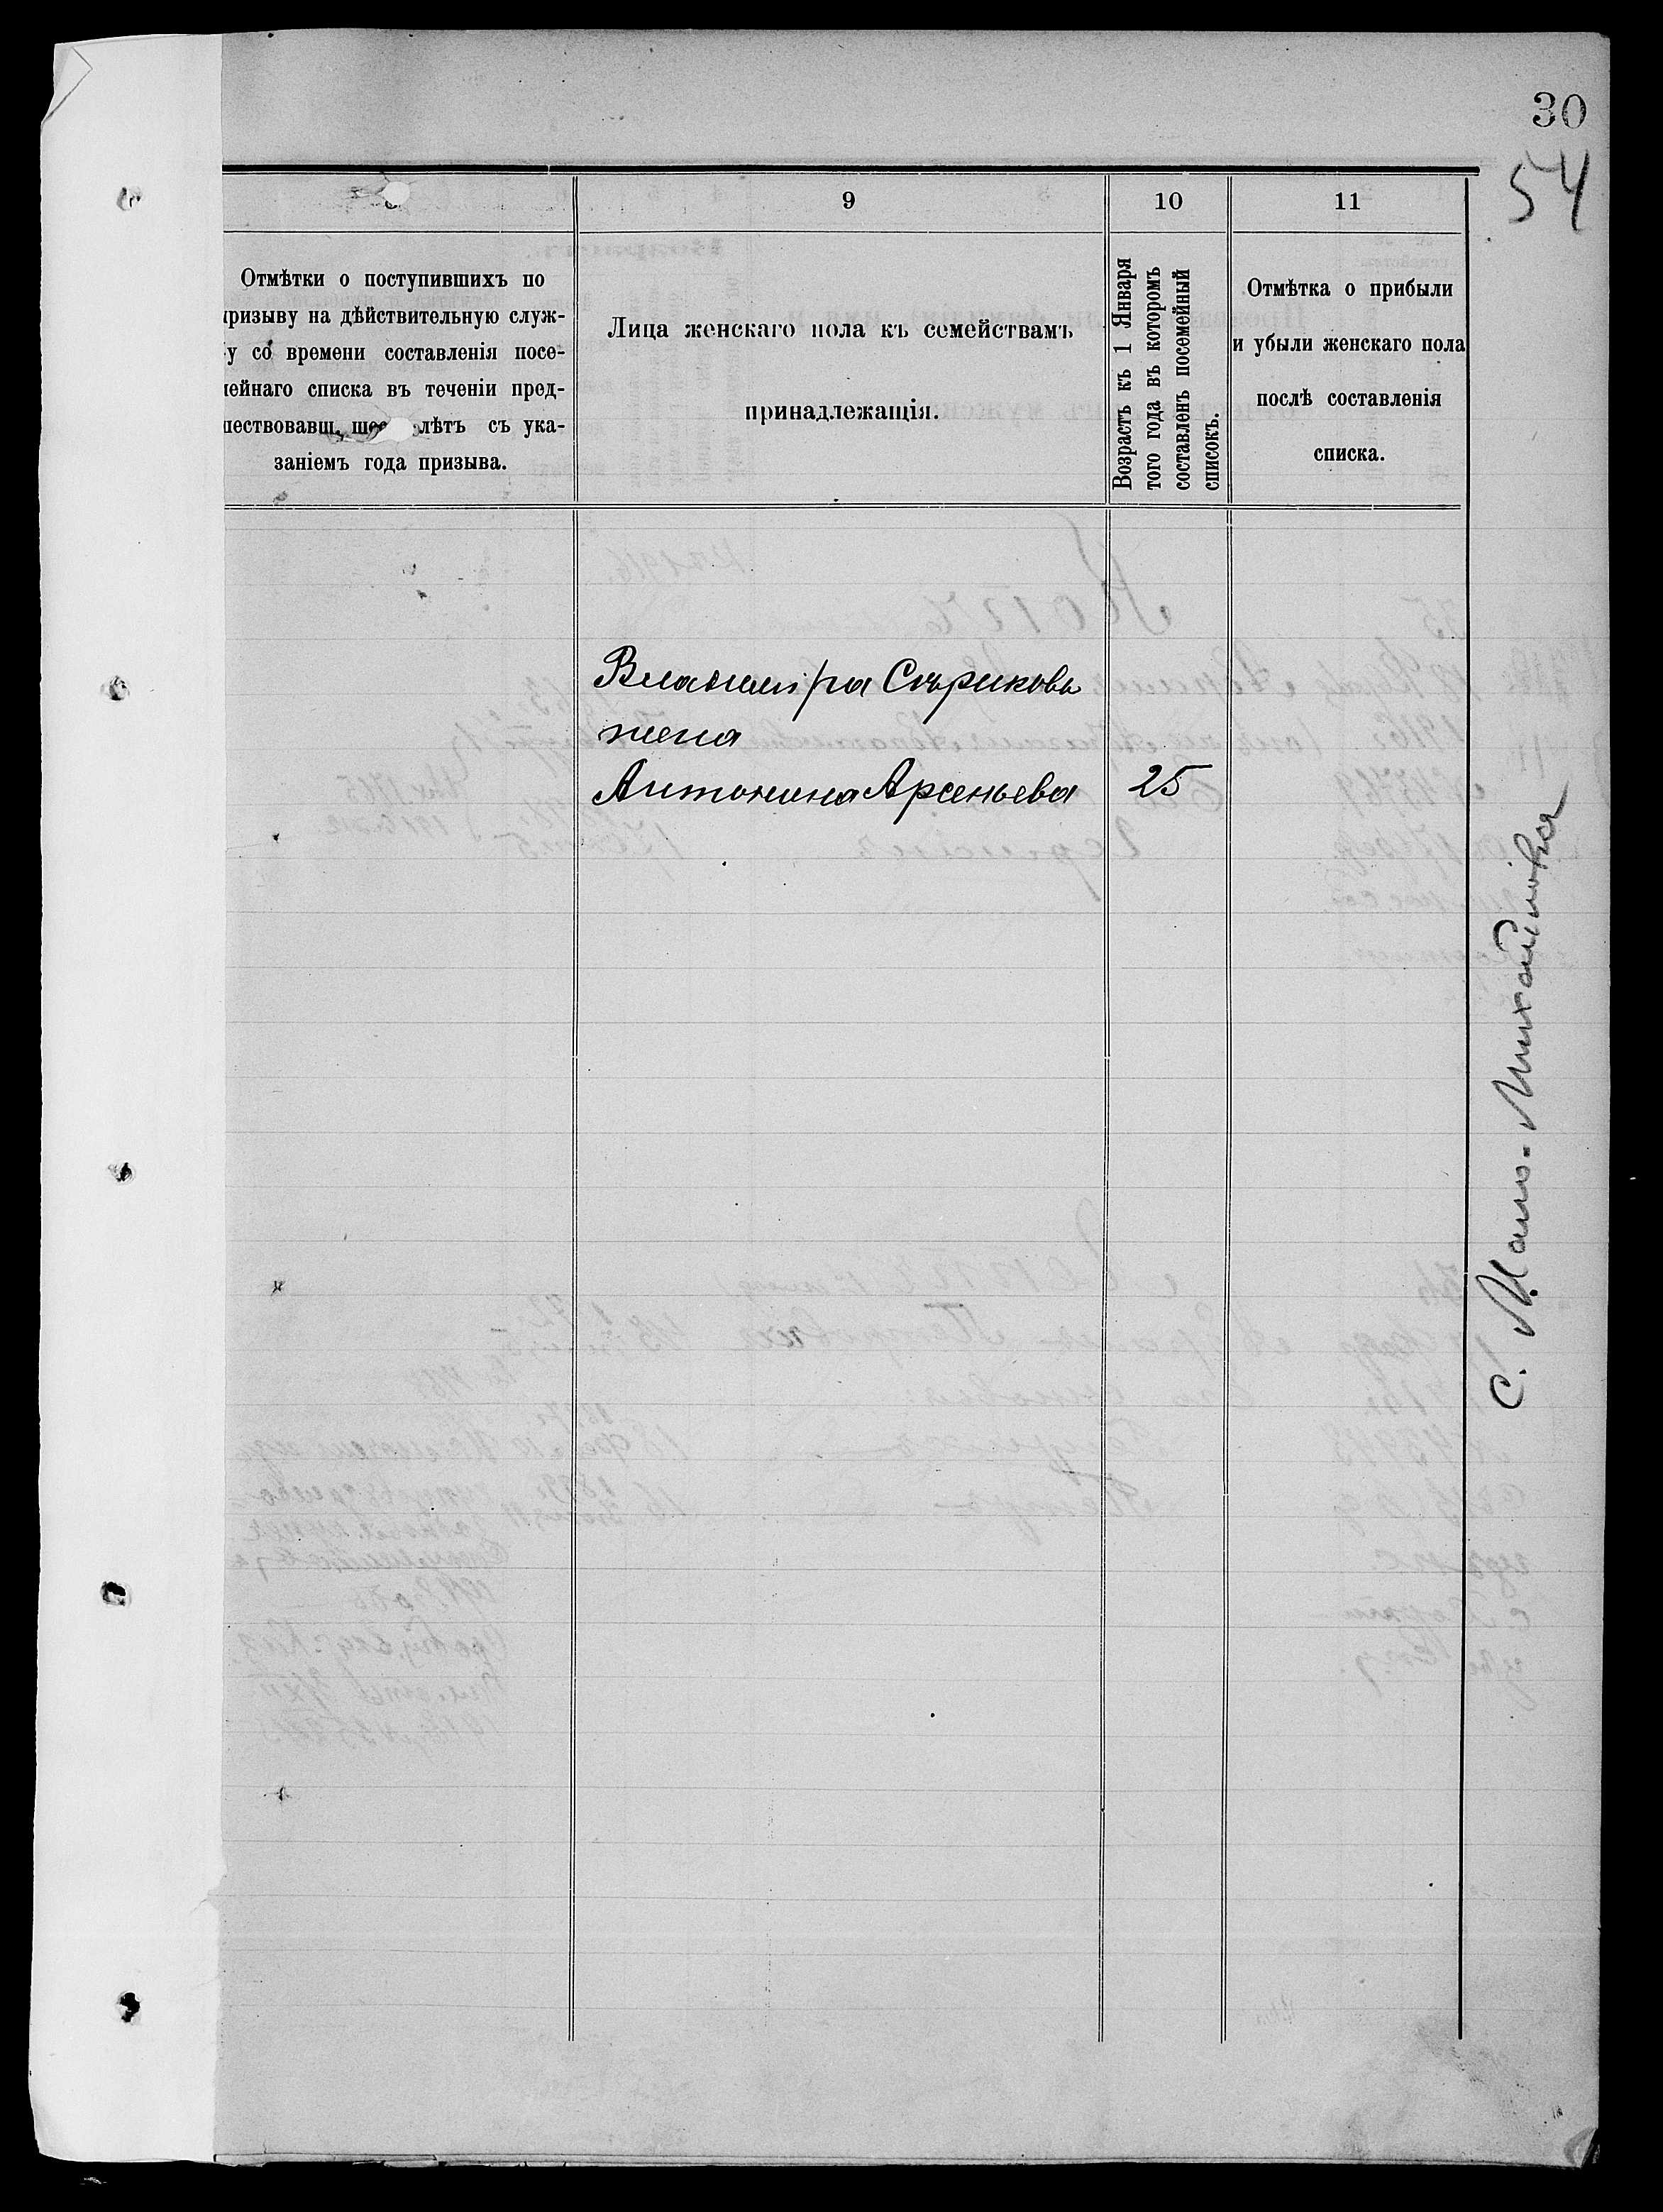 30
54
9
10
11
Отмѣтки о поступившихъ по
призыву на дѣйствительную служ-
у со времени составленія посе-
мейнаго списка въ теченіи пред-
шествовавш. лѣтъ съ ука-
заніемъ года призыва.
Лица женскаго пола къ семействамъ
принадлежащія.
Возрастъ къ 1 Января
того года въ которомъ
составленъ посемейный
списокъ.
Отмѣтка о прибыли
и убыли женскаго пола
послѣ составленія
списка.
Владиміра
жена
Антонина Арсеньева 25
с. Мало-Михайловка